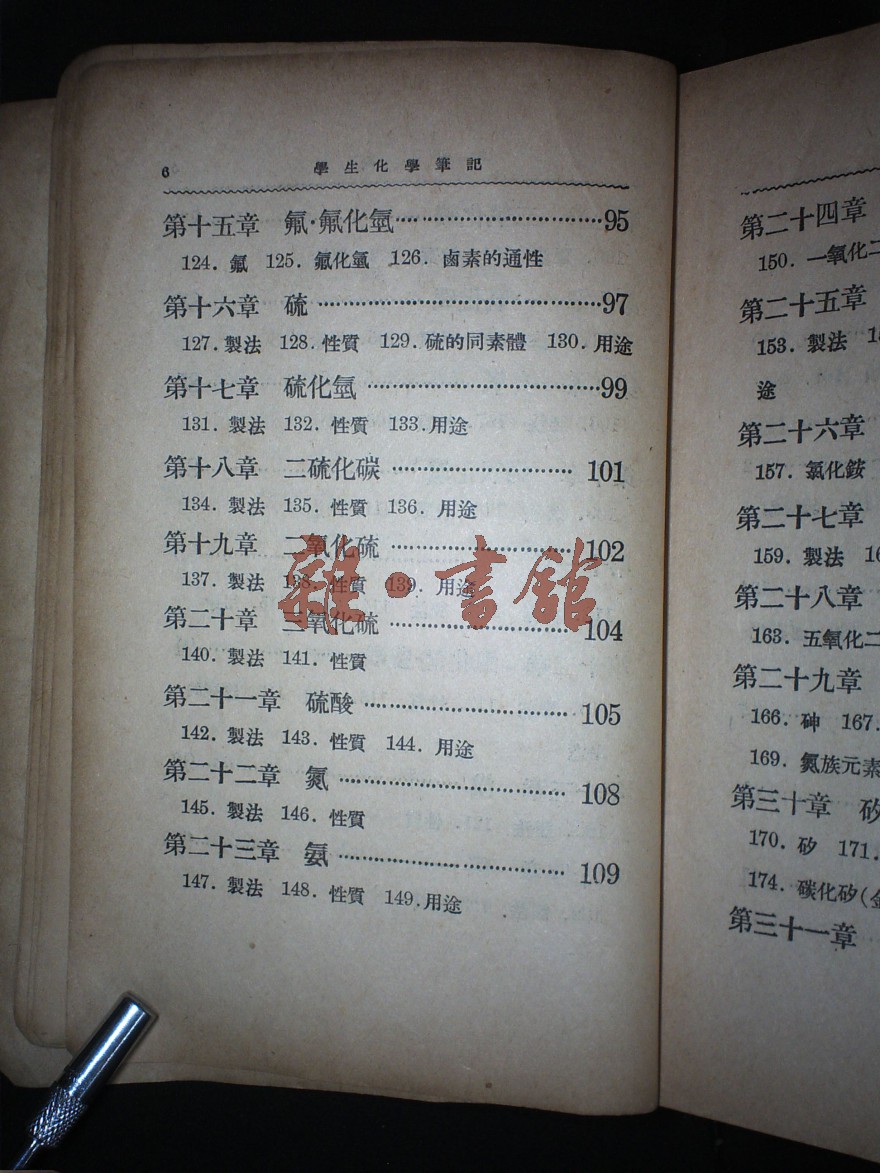 6 學生化學筆記
第十五章 氟·氟化氫……………………95
124. 氟 125. 氟化氫 126. 鹵素的通性
第十六章 硫……………………97
127. 製法 128. 性質 129. 硫的同素體 130. 用途
第十七章 硫化氫……………………99
131. 製法 132. 性質 133. 用途
第十八章 二硫化碳……………………101
134. 製法 135. 性質 136. 用途
第十九章 二氧化硫……………………102
137. 製法 138. 性質 139. 用途
第二十章 三氧化硫……………………104
140. 製法 141. 性質
第二十一章 硫酸……………………105
142. 製法 143. 性質 144. 用途
第二十二章 氮……………………108
145. 製法 146. 性質
第二十三章 氨……………………109
147. 製法 148. 性質 149. 用途
雜·書館
第二十四章
150. 一氧化二
第二十五章
153. 製法
途
第二十六章
157. 氯化銨
第二十七章
159. 製法
第二十八章
163. 五氧化二
第二十九章
166. 砷 167.
169. 氮族元素
第三十章 矽
170. 矽 171.
174. 碳化矽(金
第三十一章